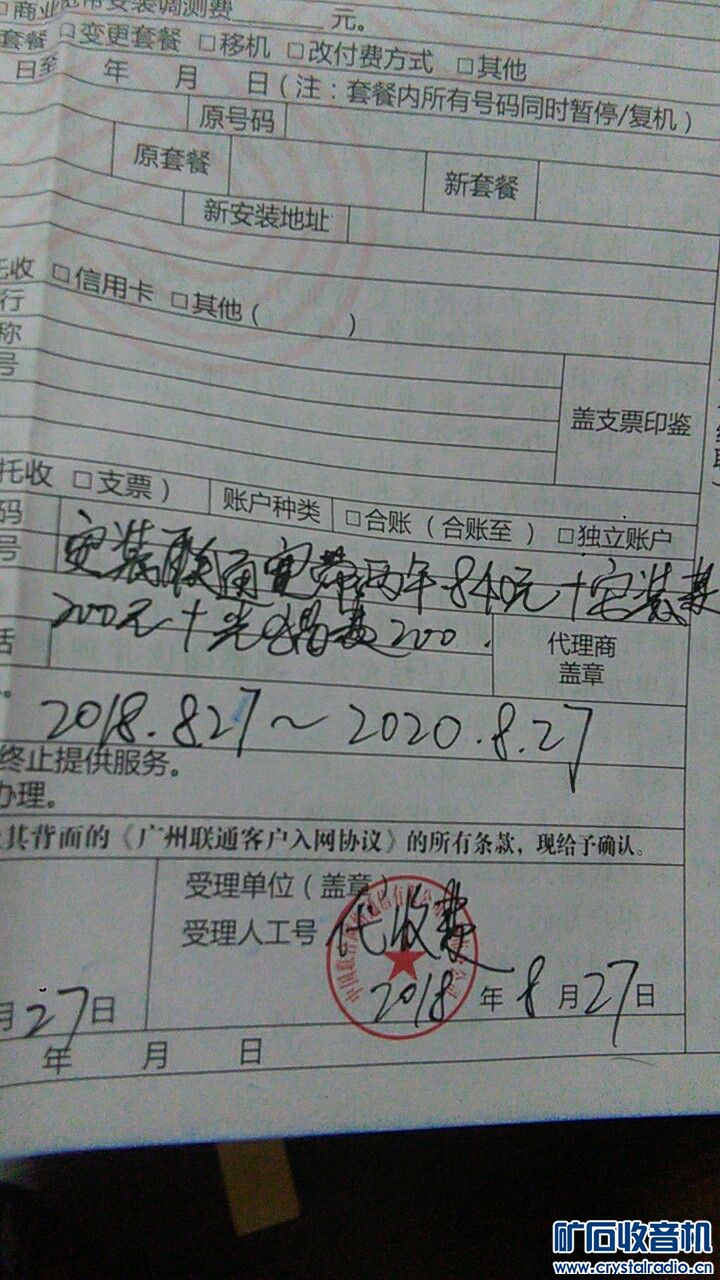 □商业宽带安装调测费 元。
套餐 □变更套餐 □移机 □改付费方式 □其他
日至 年 月 日(注：套餐内所有号码同时暂停/复机)
原号码
原套餐 新套餐
新安装地址
托收 □信用卡 □其他( )
行
称
号
盖支票印鉴
托收 □支票) 账户种类 □合账(合账至 ) □独立账户
码
号 安装联通宽带两年840元+安装费
200元+光电猫费200.
话 代理商
盖章
2018.8.27～2020.8.27
终止提供服务。
办理。
及其背面的《广州联通客户入网协议》的所有条款，现给予确认。
受理单位(盖章)
受理人工号 代收费
月27日 2018年8月27日
年 月 日
矿石收音机
www.crystalradio.cn